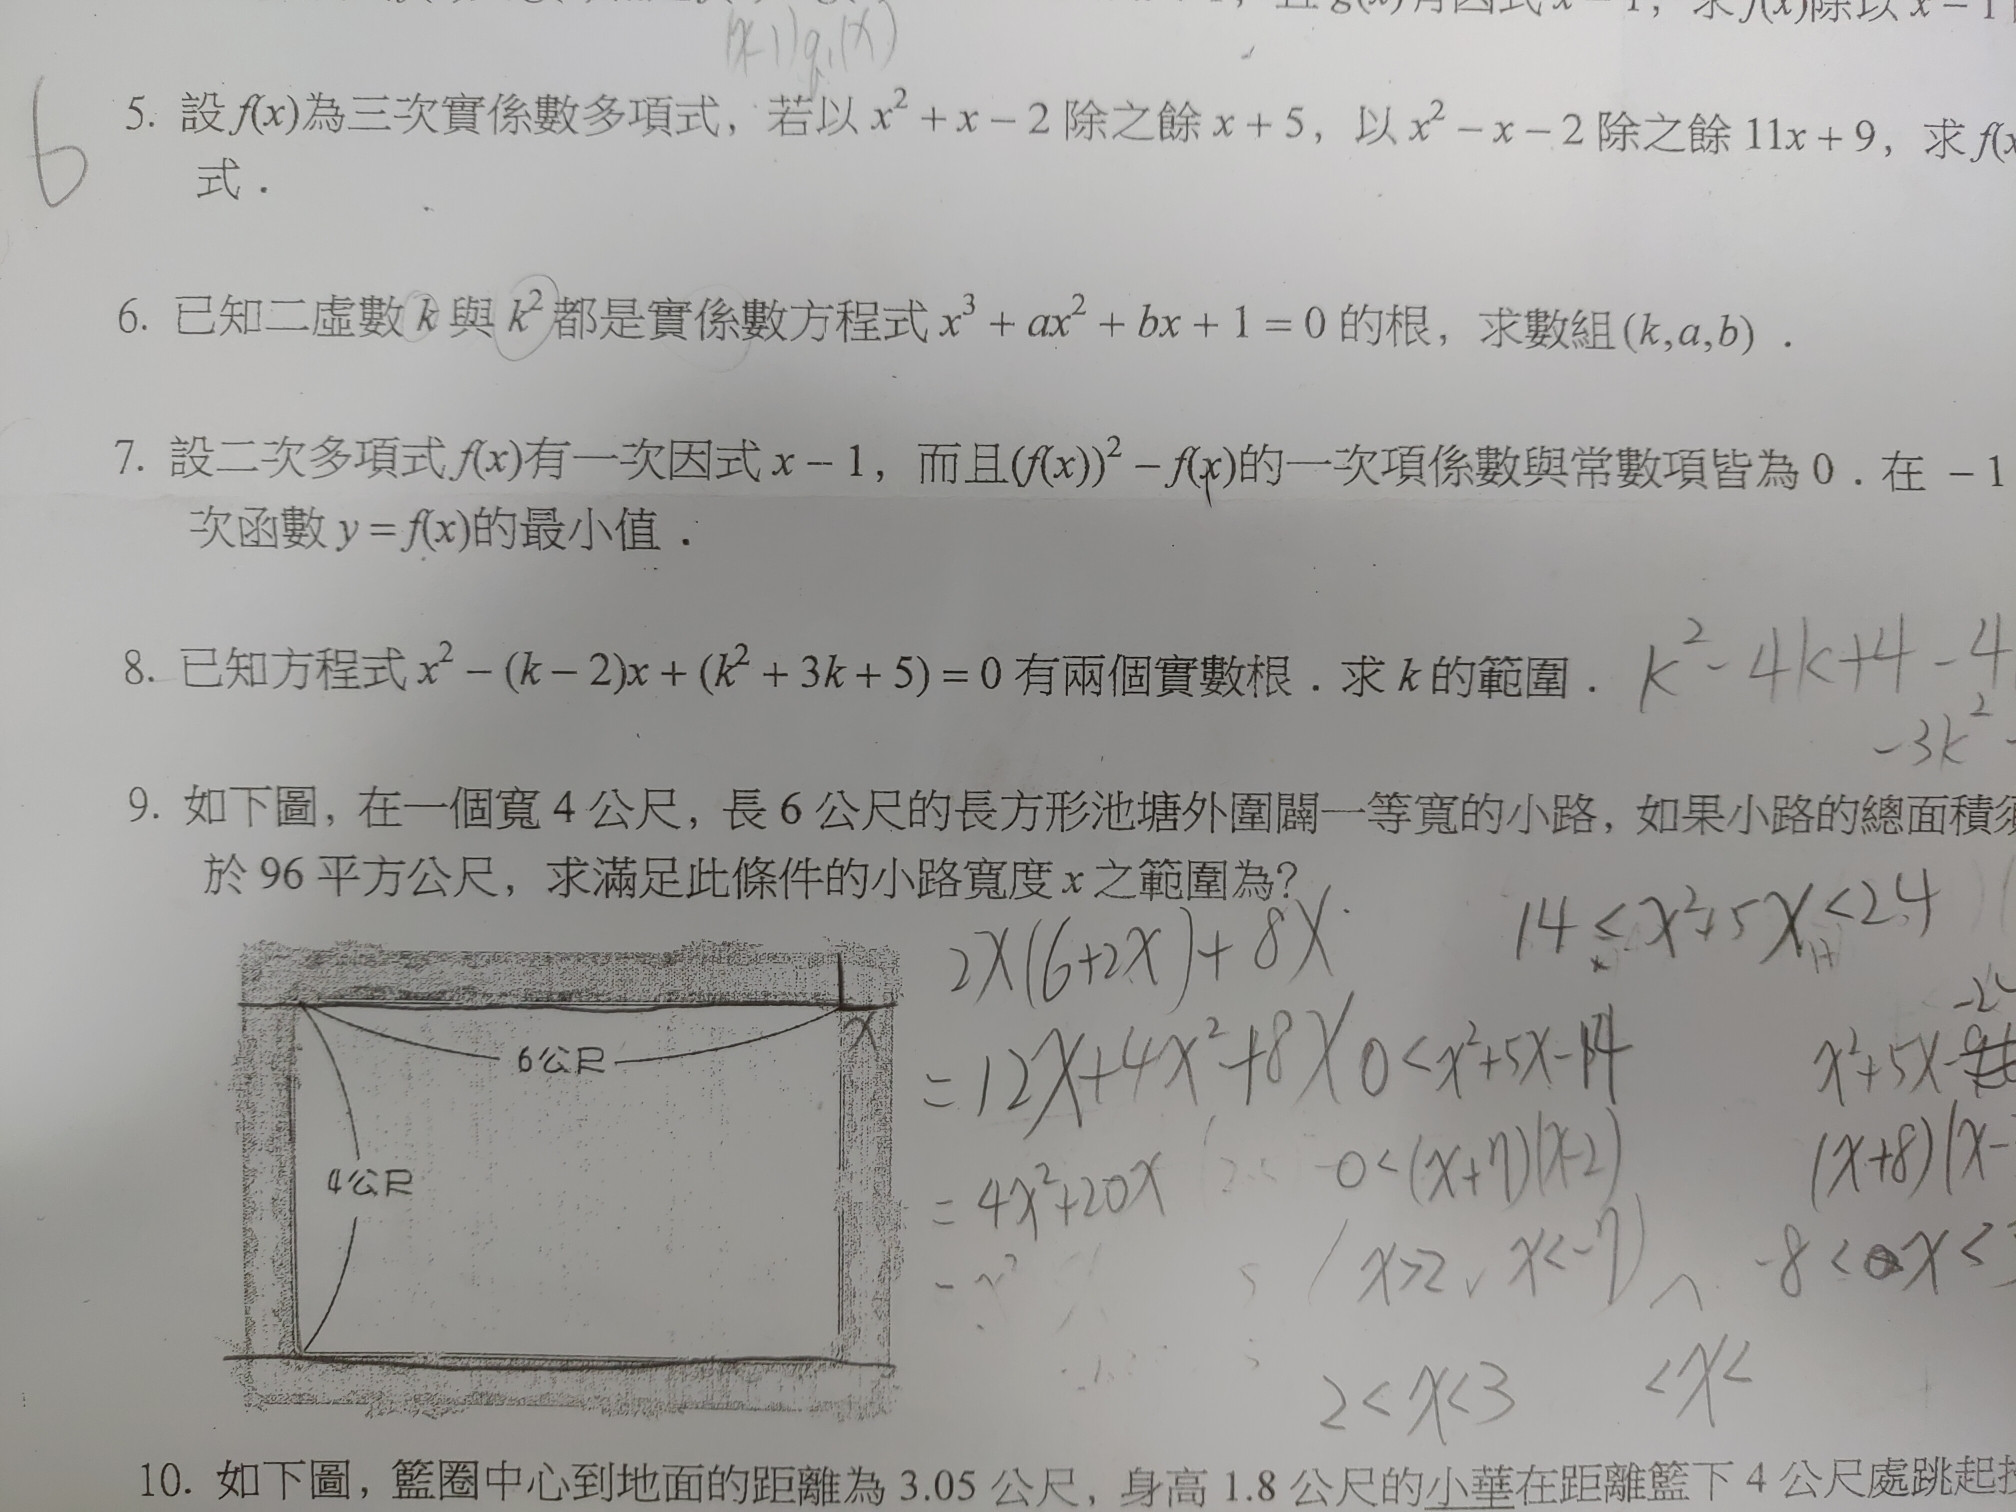 且g(x)有因式x-1，求f(x)除以x-1
(x-1)q₁(x)
6
5. 設f(x)為三次實係數多項式，若以x²+x-2除之餘x+5，以x²-x-2除之餘11x+9，求f(x
式．
6. 已知二虛數k與k²都是實係數方程式x³+ax²+bx+1=0的根，求數組(k,a,b)．
7. 設二次多項式f(x)有一次因式x-1，而且(f(x))²-f(x)的一次項係數與常數項皆為0．在-1
次函數y=f(x)的最小值．
8. 已知方程式x²-(k-2)x+(k²+3k+5)=0有兩個實數根．求k的範圍．
k²-4k+4-4
-3k²-
9. 如下圖，在一個寬4公尺，長6公尺的長方形池塘外圍闢一等寬的小路，如果小路的總面積須
於96平方公尺，求滿足此條件的小路寬度x之範圍為？
2x(6+2x)+8x
14≤x²+5x<24
x
6公尺
=12x+4x²+8x
0<x²+5x-14
x²+5x-
4公尺
=4x²+20x
0<(x+7)(x-2)
(x+8)(x-
x>2, x<-7
-8<x<3
2<x<3
<x<
10. 如下圖，籃圈中心到地面的距離為3.05公尺，身高1.8公尺的小華在距離籃下4公尺處跳起投